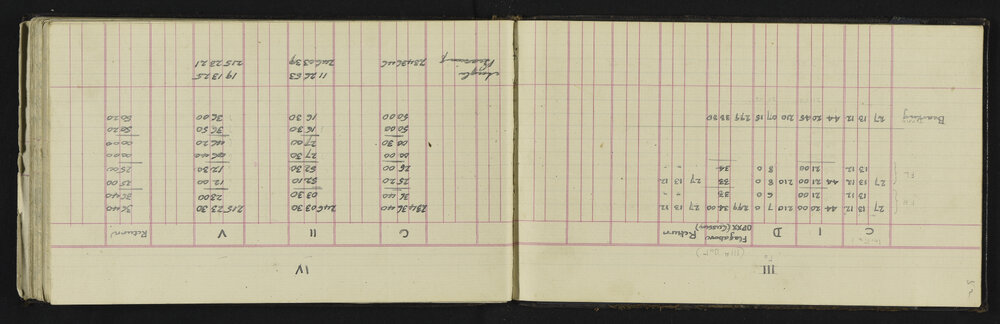 III
C I D Flagabove Return
OPXX (Cusson)
FR 27 13 12 44 20 00 210 7 0 299 34 00 27 13 12
13 12 21 00 6 0 35 " "
FL 27 13 12 44 21 00 210 8 0 33 27 13 12
13 12 21 00 8 0 34
Bearing 27 13 12 44 20 45 210 07 15 299 33 30
IV
G II V Return
284 36 40 246 03 30 215 23 30 36 40
36 40 03 30 23 00 36 40
25 20 52 10 12 00 25 00
25 00 52 30 12 30 25 00
00 00 27 30 46 40 00 00
00 30 27 00 46 20 00 00
50 00 16 30 36 50 50 20
50 00 16 30 36 00 50 20
Angle 11 26 53 19 13 25
Bearing 284 36 46 246 03 39 215 23 21